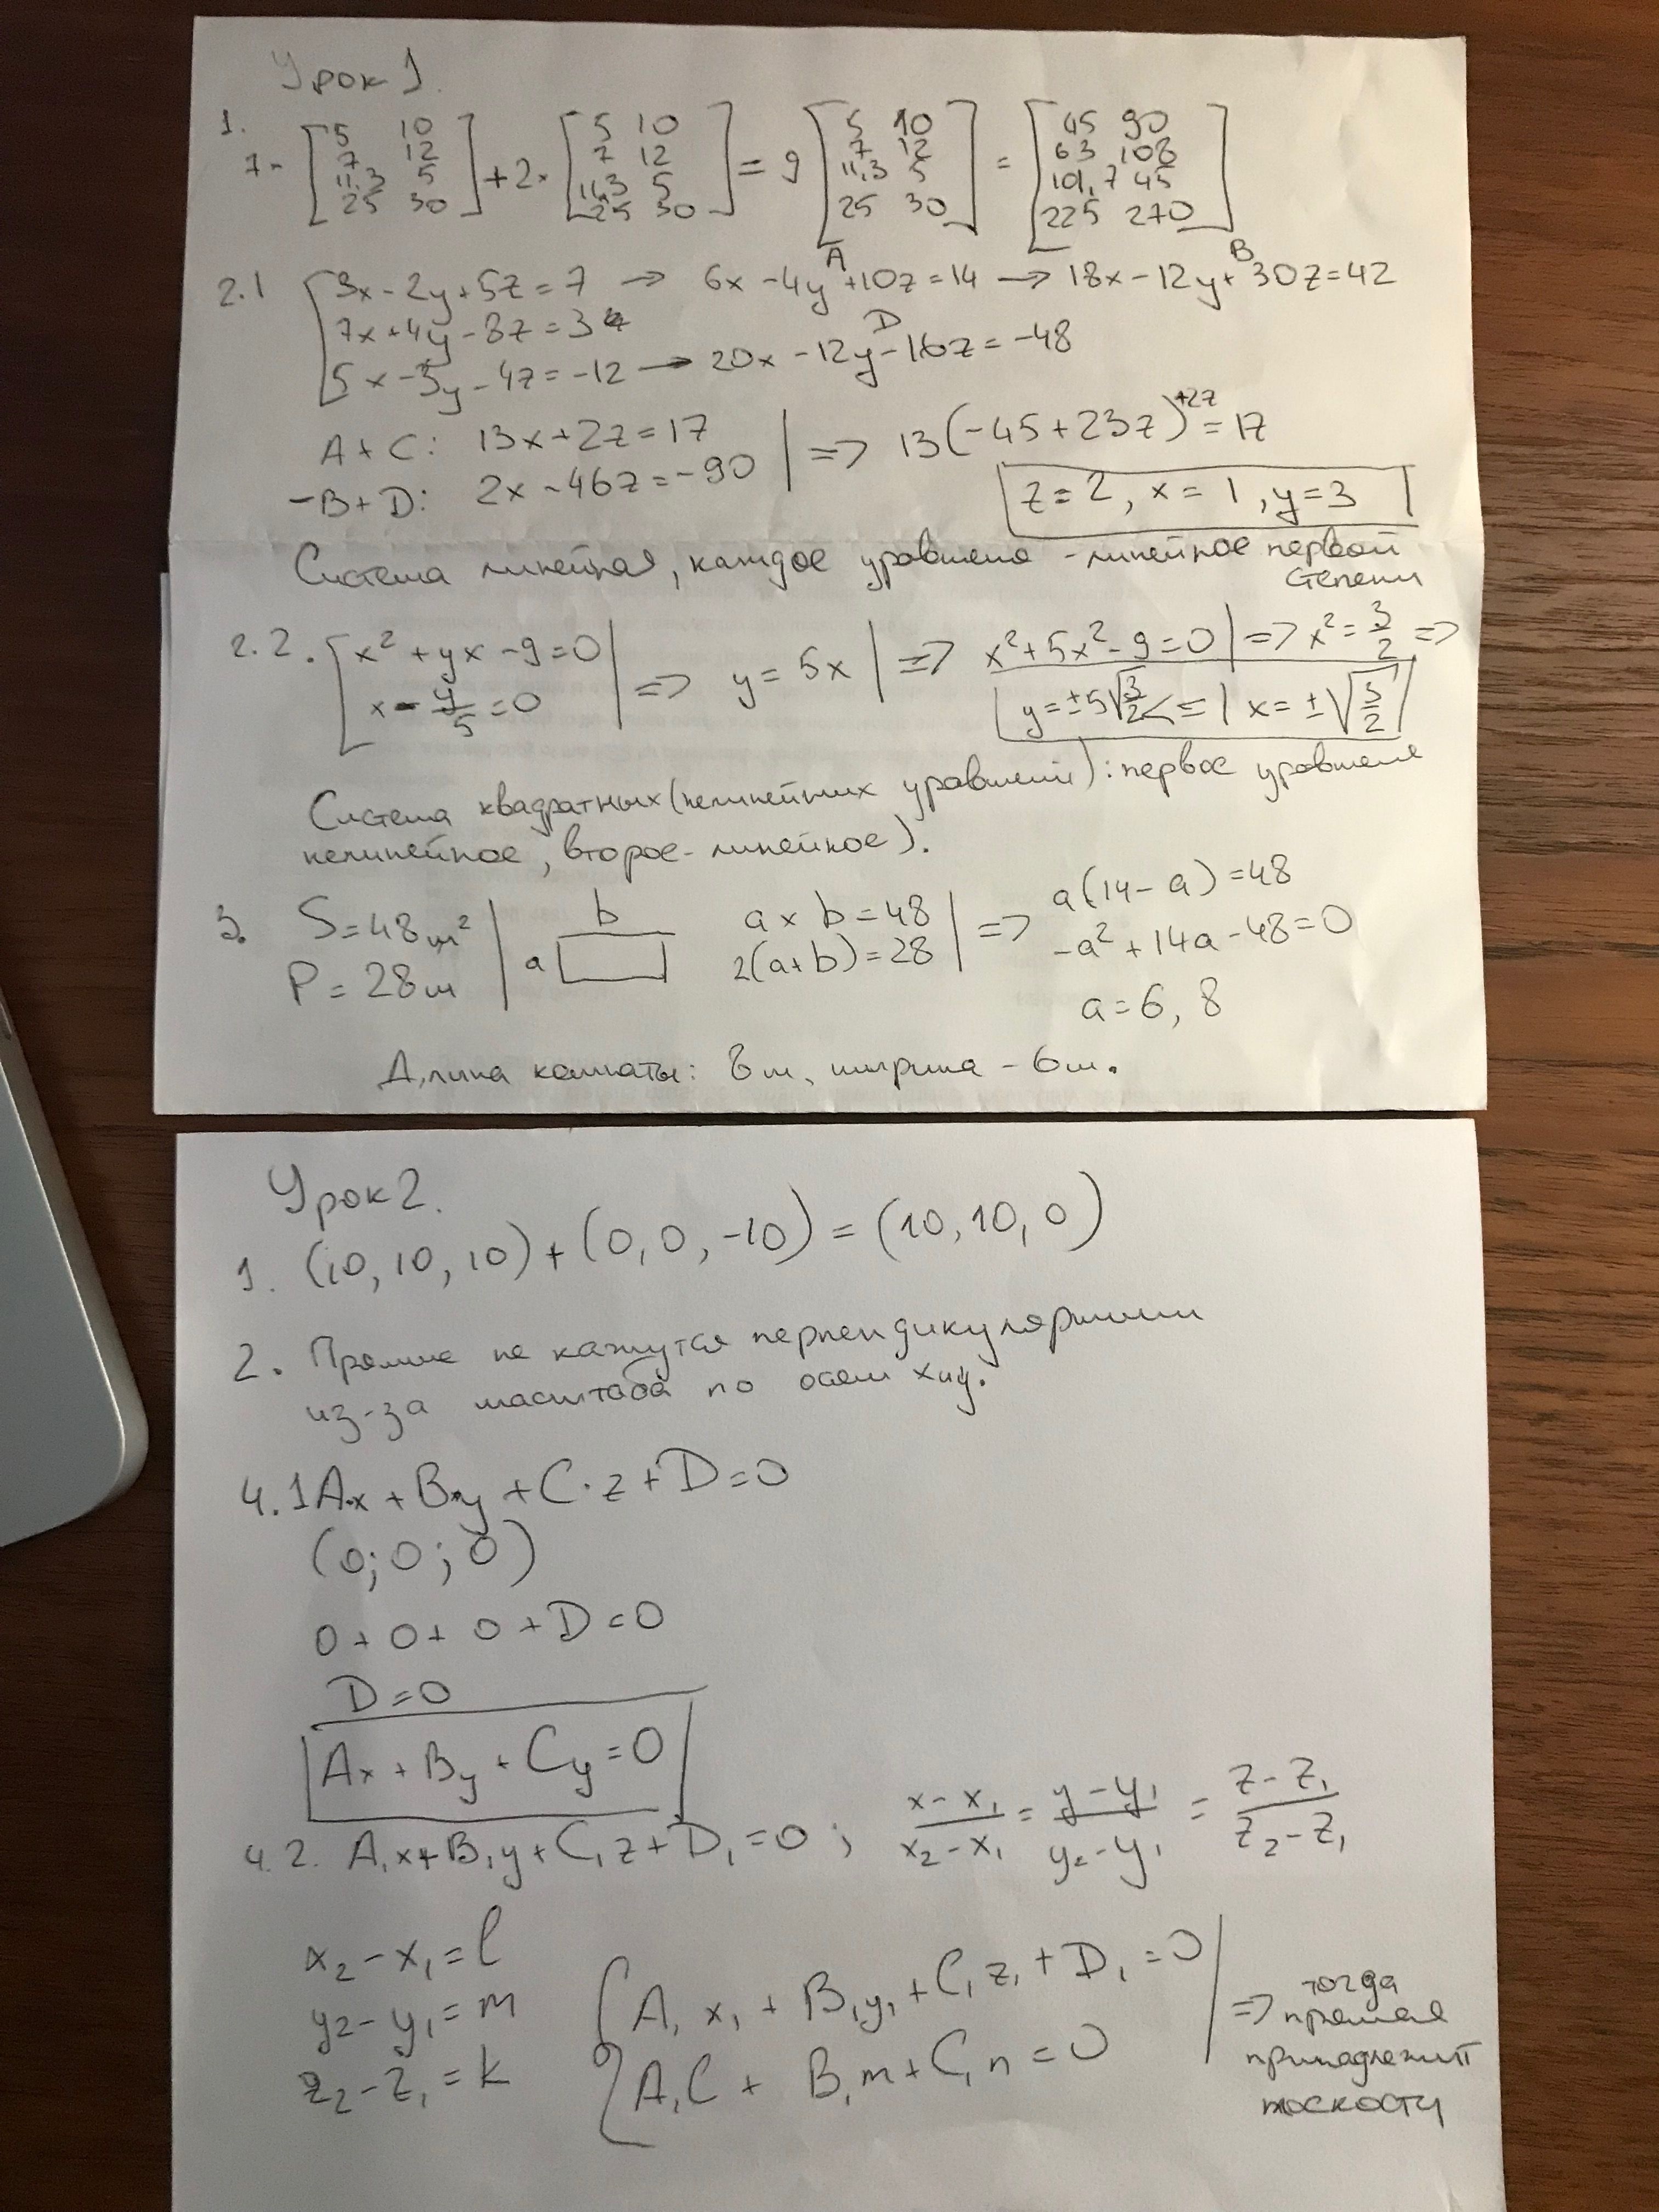 Урок 1.
1.
7· [5 10
7 12
11,3 5
25 30] + 2· [5 10
7 12
11,3 5
25 30] = 9 [5 10
7 12
11,3 5
25 30] = [45 90
63 108
101,7 45
225 270]
A B
2.1 3x - 2y + 5z = 7 → 6x - 4y + 10z = 14 → 18x - 12y + 30z = 42
7x + 4y - 8z = 3
D
5x - 3y - 4z = -12 → 20x - 12y - 16z = -48
A + C: 13x + 2z = 17 | => 13(-45 + 23z)+2z = 17
-B + D: 2x - 46z = -90
z = 2, x = 1, y = 3
Система линейная, каждое уравнение - линейное первой
степени
2.2. x² + yx - 9 = 0 | => y = 5x | => x² + 5x² - 9 = 0 | => x² = 3/2 =>
x - y/5 = 0
y = ±5√3/2 <= | x = ±√3/2
Система квадратных (нелинейных уравнений): первое уравнение
нелинейное, второе - линейное).
3. S = 48 м² | b a × b = 48 | => a(14 - a) = 48
P = 28 м | a 2(a+b) = 28 | -a² + 14a - 48 = 0
a = 6, 8
Длина комнаты: 8 м, ширина - 6 м.
Урок 2.
1. (10, 10, 10) + (0, 0, -10) = (10, 10, 0)
2. Прямые не кажутся перпендикулярными
из-за масштаба по осям x и y.
4.1 A·x + B·y + C·z + D = 0
(0; 0; 0)
0 + 0 + 0 + D = 0
D = 0
Ax + By + Cy = 0
4.2. A₁x + B₁y + C₁z + D₁ = 0 ; x - x₁/x₂ - x₁ = y - y₁/y₂ - y₁ = z - z₁/z₂ - z₁
x₂ - x₁ = l
y₂ - y₁ = m
z₂ - z₁ = k
A₁x₁ + B₁y₁ + C₁z₁ + D₁ = 0
A₁l + B₁m + C₁n = 0
=> тогда
прямая
принадлежит
плоскости